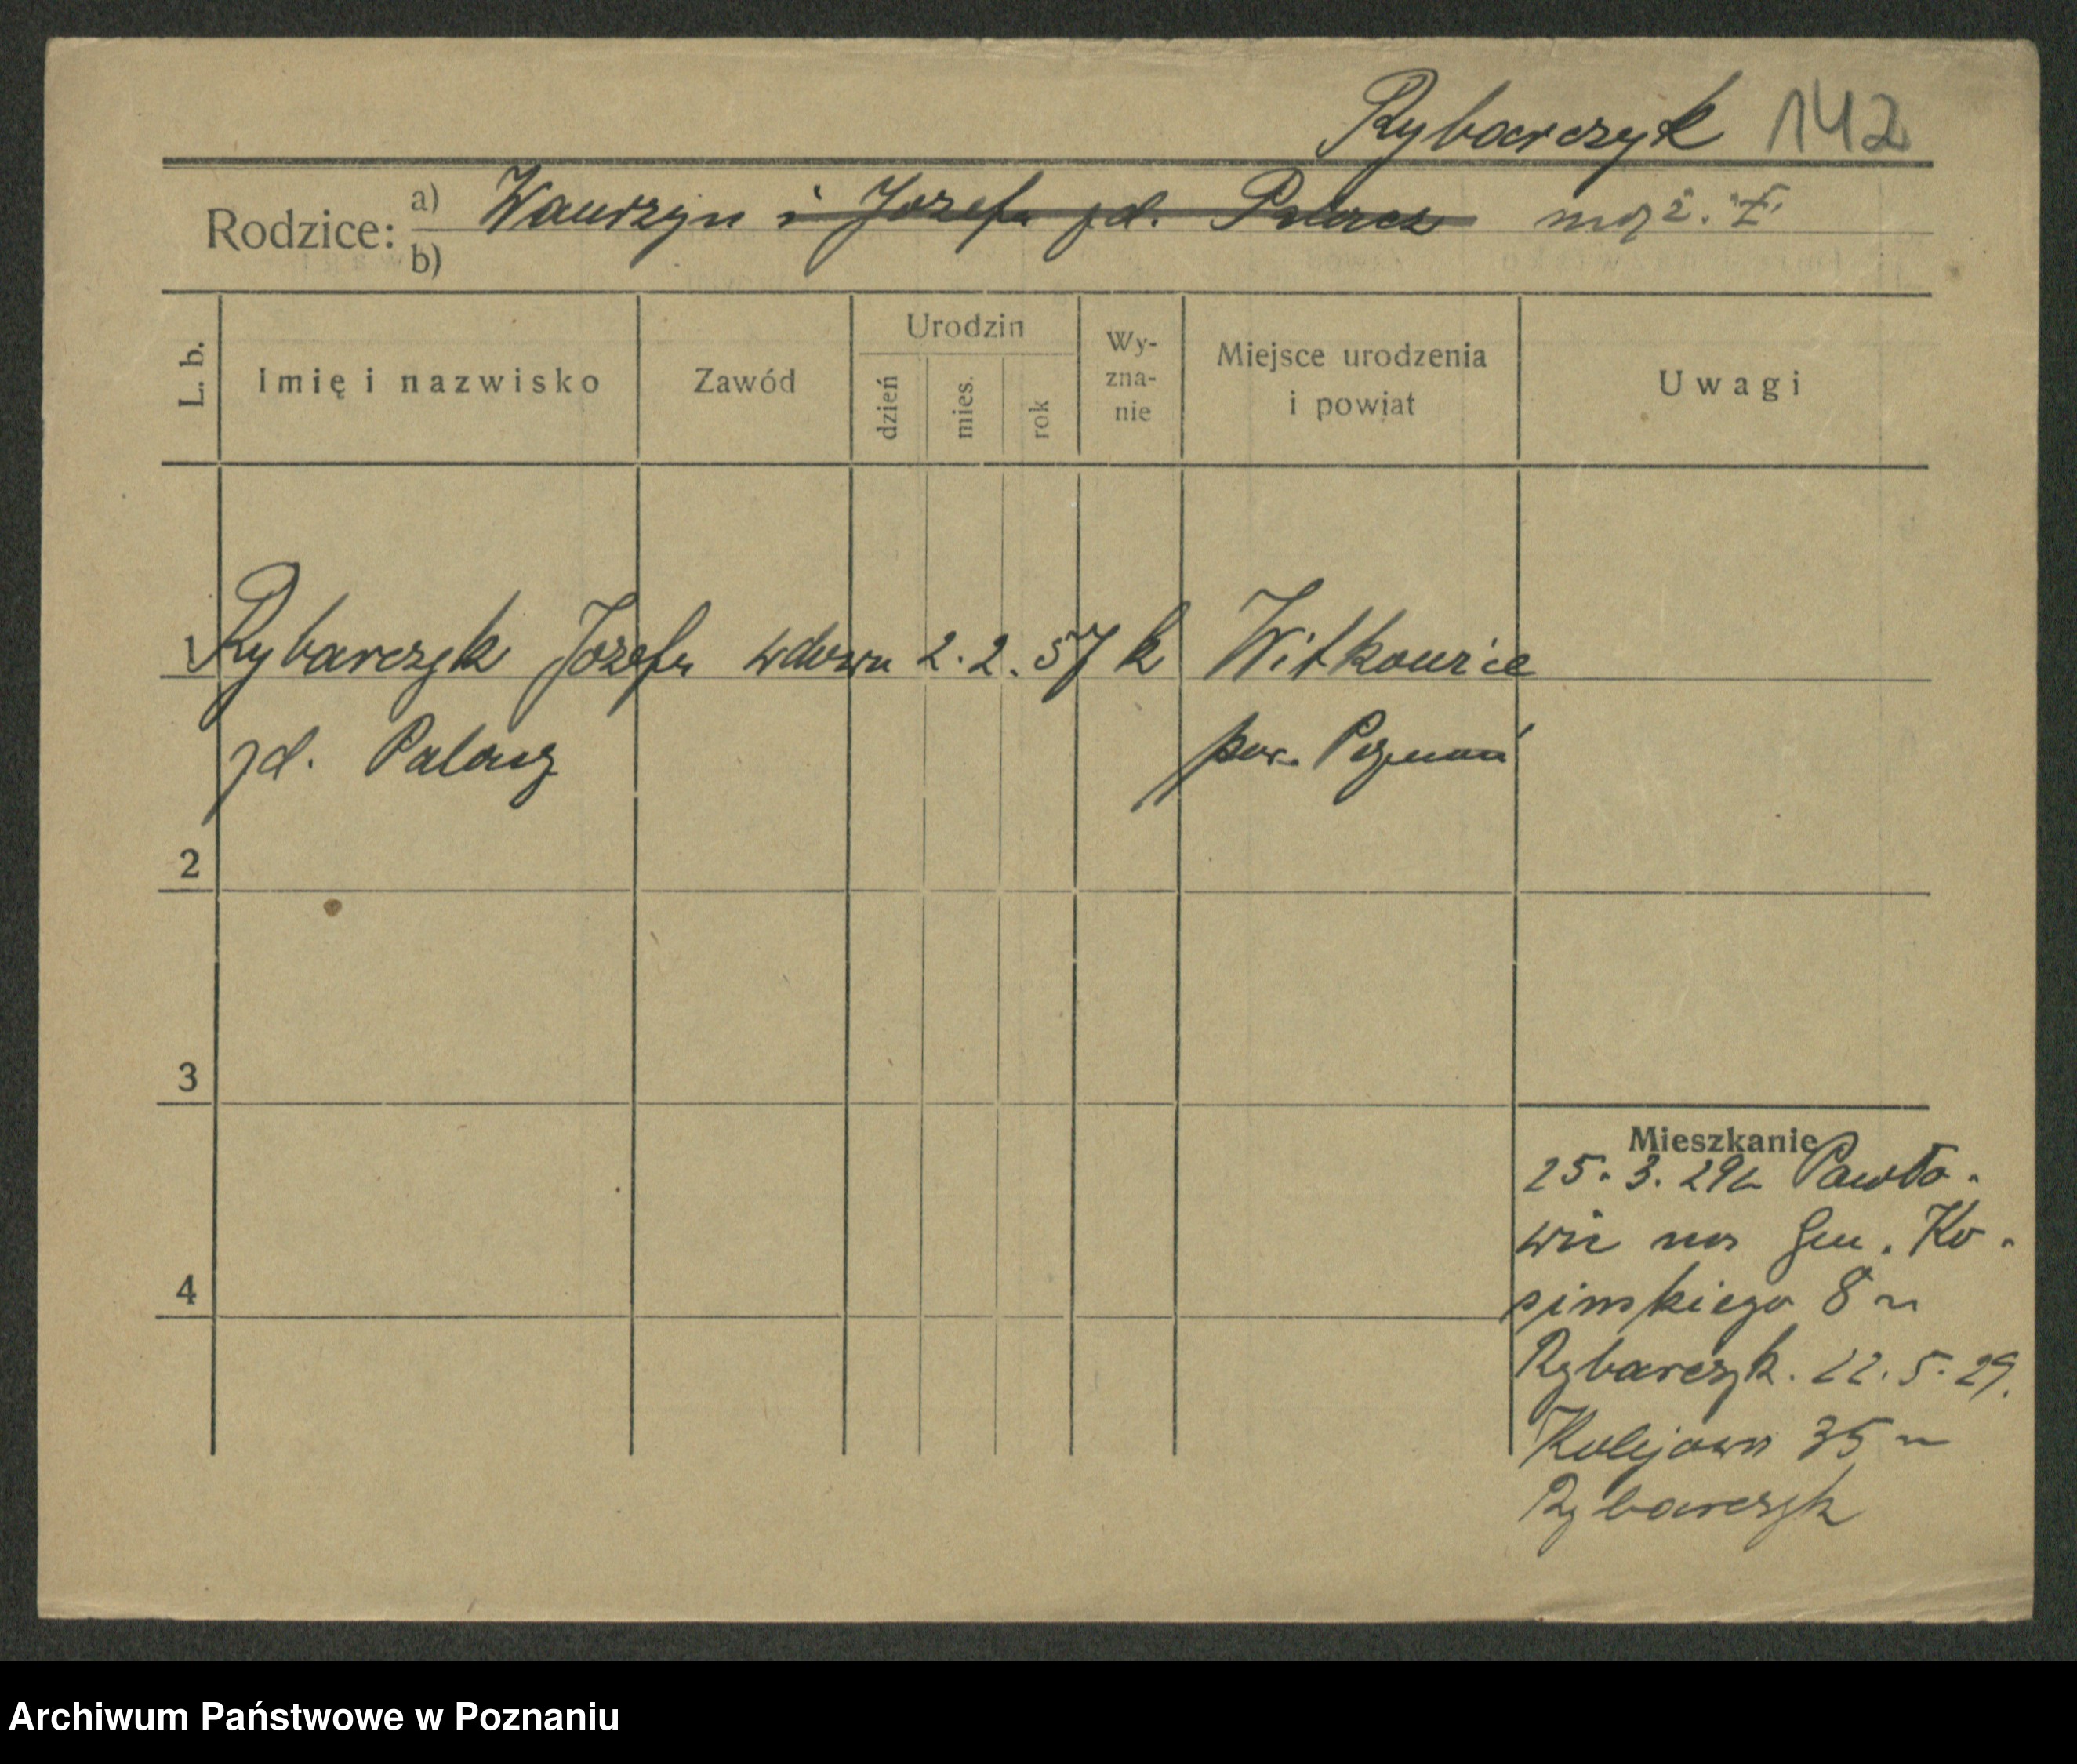 Rybarczyk 142
Rodzice: a) Wawrzyn i Jozefa zd. Palacz mąż. I
b)
L. b. Imię i nazwisko Zawód Urodzin dzień mies. rok Wy-zna-nie Miejsce urodzenia i powiat Uwagi
1 Rybarczyk Jozefa wdowa 2. 2. 57 k Witkowice
zd. Palacz pow. Poznań
2
3
4
Mieszkanie
25. 3. 29 z Pawło-
wic na Gen. Ko-
sinskiego 8 u
Rybarczyk. 22. 5. 29.
Kolejowa 35 u
Rybarczyk
Archiwum Państwowe w Poznaniu